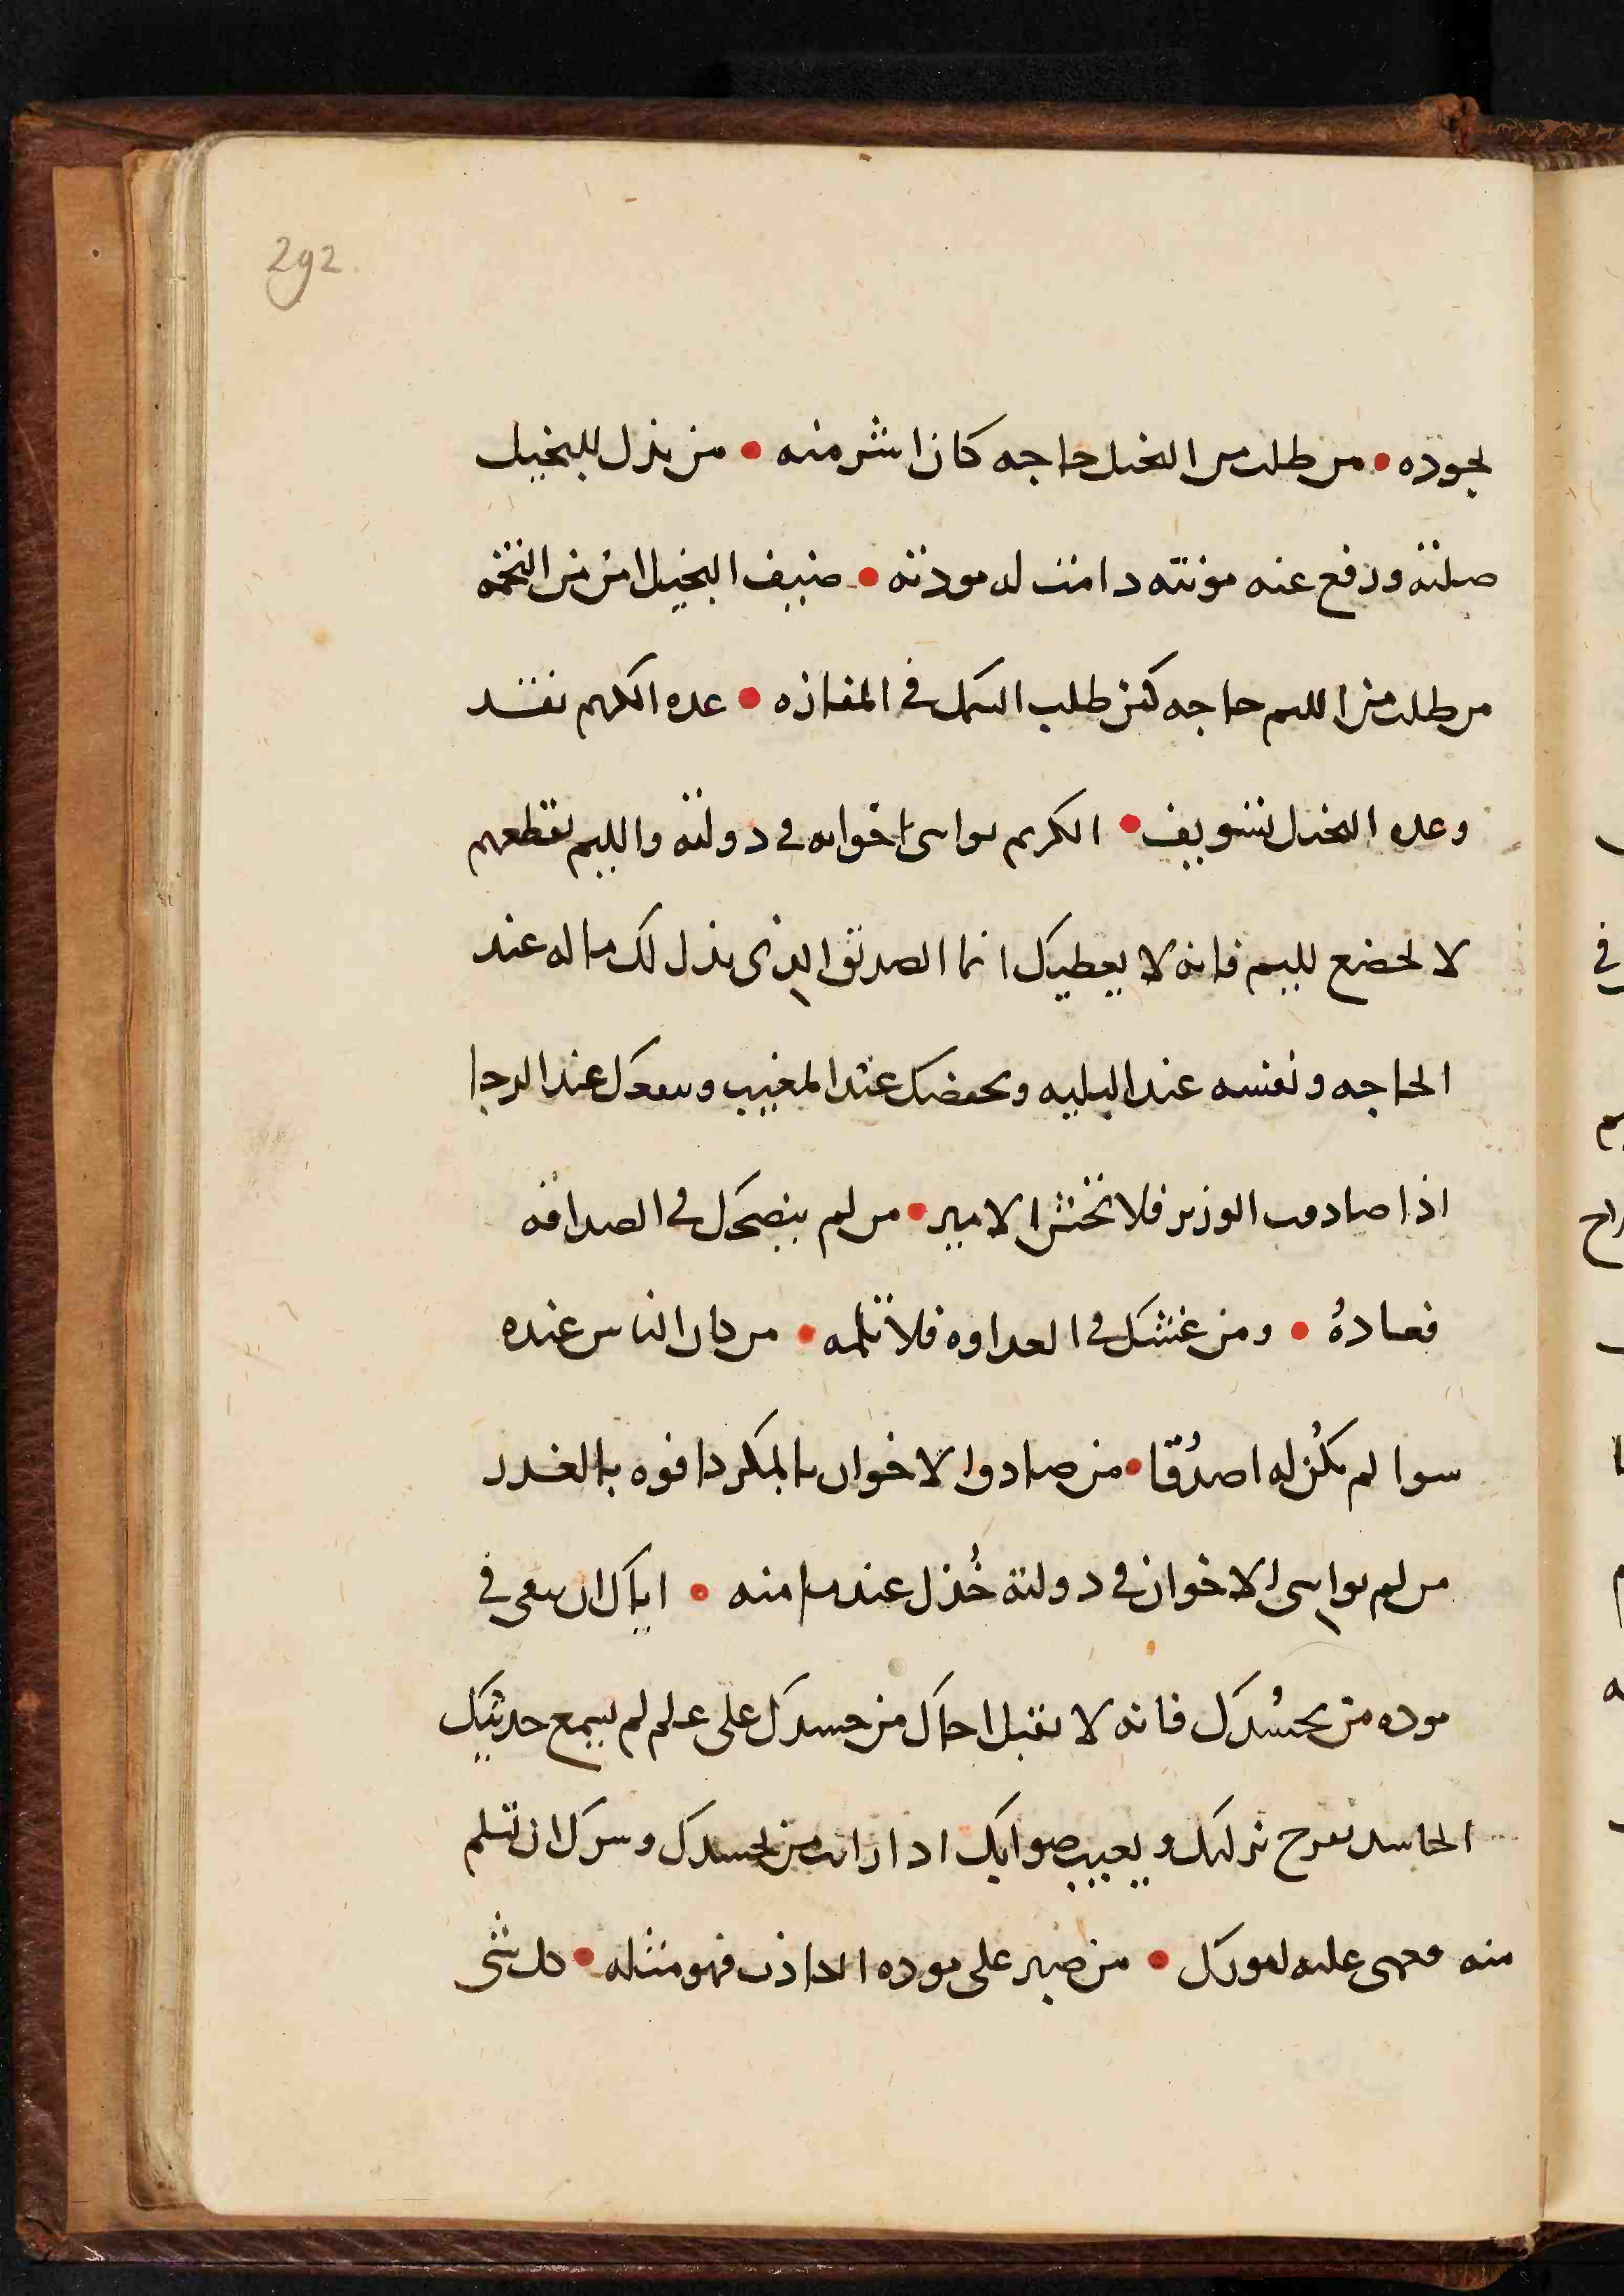 292
لجوده • من طلب من البخيل حاجه كان اشر منه • من بذل للبخيل
صلته ودفع عنه مونته دامت له مودته • ضيف البخيل امن من التخمه
من طلب من الليم حاجه كمن طلب السمك في المفازه • عده الكريم نقد
وعده البخيل تسويف • الكريم يواسى اخوانه في دولته والليم يقطعهم
لا تخضع لليم فانه لا يعطيك انما الصديق الذى بذل لك ماله عند
الحاجه ونفسه عند البليه ويحفضك عند المغيب عند الرجا
اذا صادفت الوزير فلا تخش الامير • من لم ينصحك في الصداقه
فعاده • ومن غشك في العداوه فلا تلمه • من كان الناس عنده
سوا لم يكن له اصدقا • من صادوا الاخوان بالمكر كافوه بالغدر
من لم يواسى الاخوان في دولته خذل عند منه • اياك ان تسعى في
موده من يحسدك فانه لا يقبل من حسدك على علم لم يسمع حديثك
الحاسد يفرح بزلتك ويعيب صوابك اذا رايت من يحسدك وسرك ان تسلم
منه فعمى عليه امورك • من صبر على موده الكاذب فهو مثله • كل شى